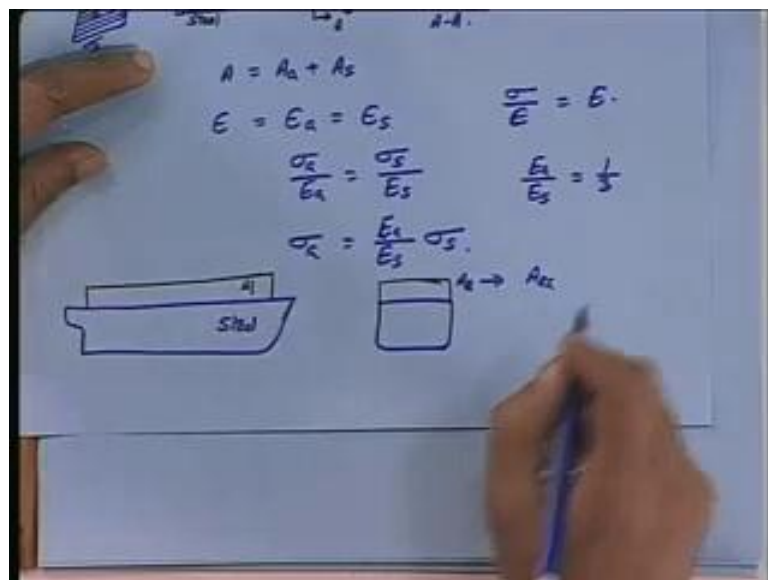 Steel
A-A.
A = Aa + As
ε = εa = εs
σ/E = ε.
σa/Ea = σs/Es
Ea/Es = 1/3
σa = Ea/Es σs.
Al
Steel
Aa →